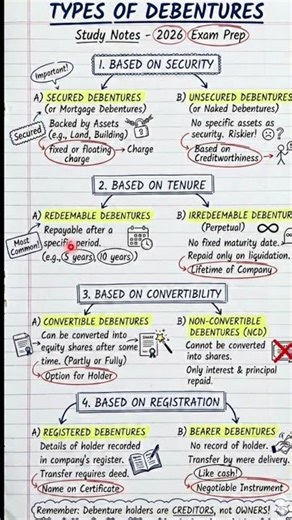 TYPES OF DEBENTURES
Study Notes - 2026 Exam Prep
Important!
1. BASED ON SECURITY
A) SECURED DEBENTURES
(or Mortgage Debentures)
Backed by Assets
(e.g., Land, Building)
Secured
fixed or floating charge → Charge
B) UNSECURED DEBENTURES
(or Naked Debentures)
No specific assets as
security. Riskier!
Based on
Creditworthiness
2. BASED ON TENURE
A) REDEEMABLE DEBENTURES
Repayable after a
specific period.
(e.g., 5 years, 10 years)
Most
Common!
B) IRREDEEMABLE DEBENTUR
(Perpetual)
No fixed maturity date.
Repaid only on liquidation.
Lifetime of Company
3. BASED ON CONVERTIBILITY
A) CONVERTIBLE DEBENTURES
Can be converted into
equity shares after some
time. (Partly or Fully)
Option for Holder
SHARE
B) NON-CONVERTIBLE
DEBENTURES (NCD)
Cannot be converted
into shares.
Only interest & principal
repaid.
4. BASED ON REGISTRATION
A) REGISTERED DEBENTURES
Details of holder recorded
in company's register.
Transfer requires deed.
Name on Certificate
B) BEARER DEBENTURES
No record of holder.
Transfer by mere delivery.
Like cash!
Negotiable Instrument
Remember: Debenture holders are CREDITORS, not OWNERS!